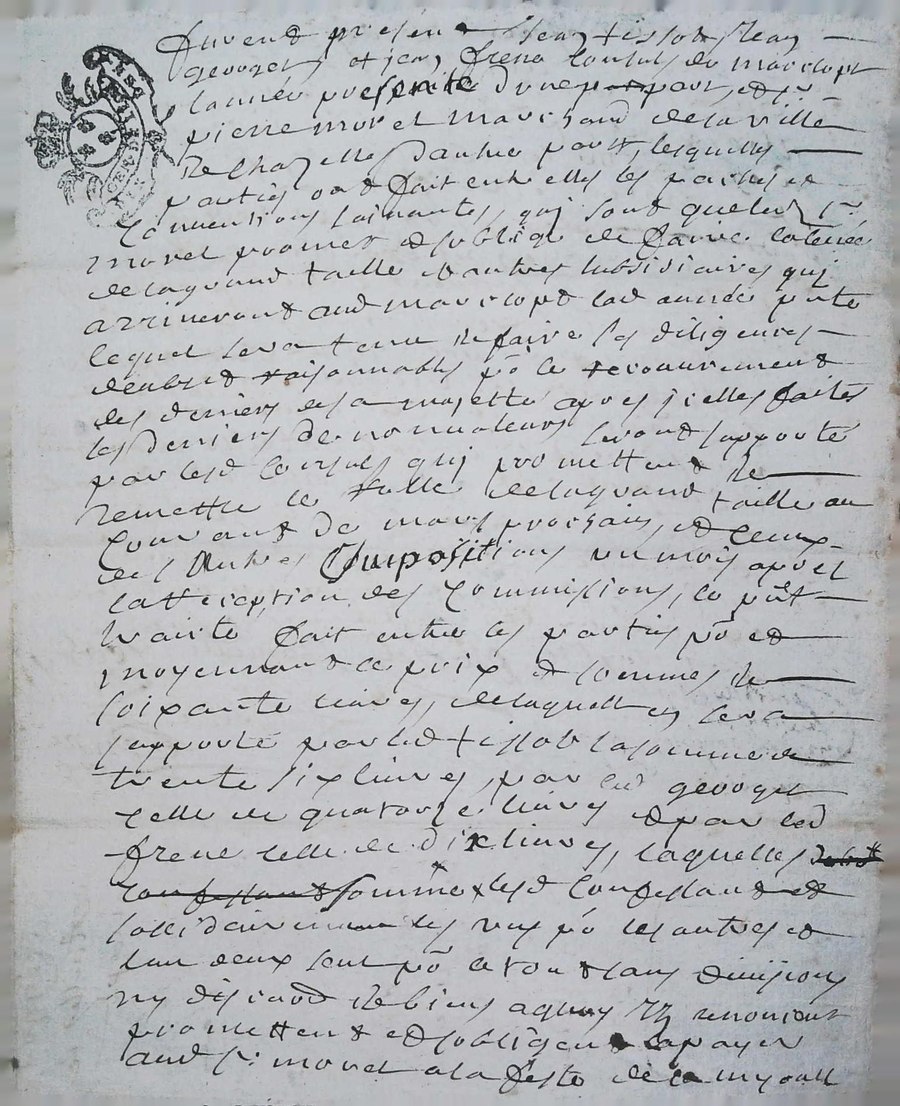 furent presens Jean tissot, Jean
georget et jean frene Consuls de marclopt
lannée presente dune part, et sr
pierre moret marchand de la ville
de Chazelles dautre part, lesquelles
parties ont fait entre elles les pactes et
Conventions suivantes, qui sont que led sr
moret promet et soblige de faire la levée
de la grand taille et autres subsidiaires qui
arriveront aud marclopt lad année pnte
lequel sera tenu de faire les diligences
deubes et raisonnables po le recouvrement
des deniers de sa majesté apres icelles faites
les deniers de non valeurs seront supporté
par lesd Consuls qui promettent de
remettre le rolle de la grand taille au
Courant de mars prochain, et Ceux
des Autres Impositions un mois apres
la reception des Commissions, le pnt
traité fait entre les parties po et
moyennant le prix et somme de
soixante livres, de laquelle en sera
supporté par led tissot la somme de
trente six livres, par led georget
celle de quatorze livres et par led
frene celle de dix livres, laquelle
somme lesd Confessant et
sollidairement les uns po les autres et
lun deux seul po le tout sans division
ny discution de biens a quoy ils renoncent
promettent et sobligent payer
aud sr moret a la feste de la my aout